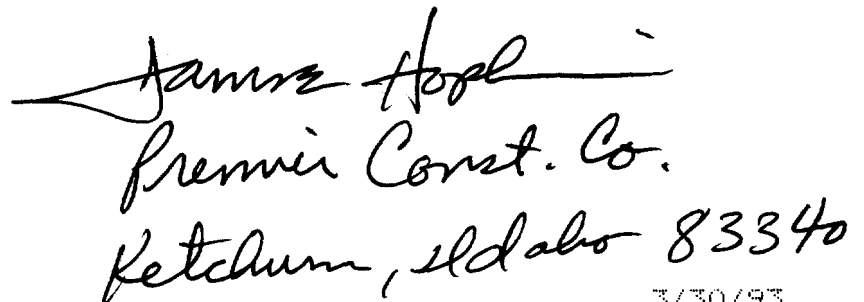 Hop
Premier Const. Co.
Ketchum, Idaho 83340
3/30/93